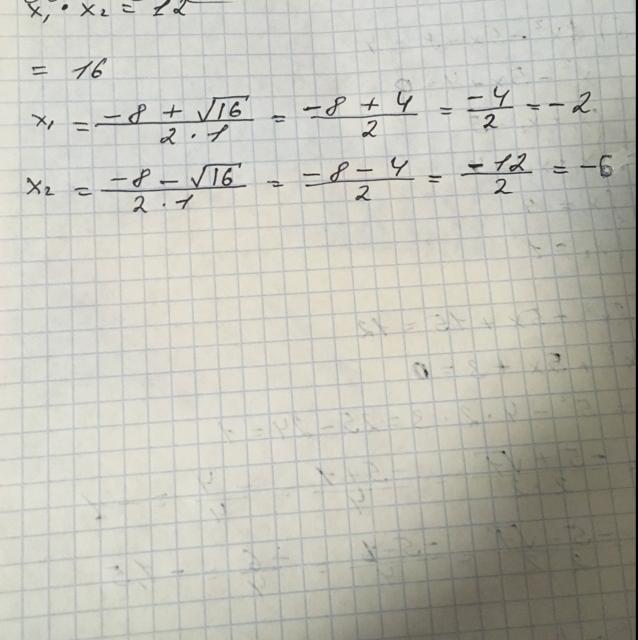 x₁ · x₂ = 12
= 16
x₁ = (-8 + √16)/(2 · 1) = (-8 + 4)/2 = -4/2 = -2
x₂ = (-8 - √16)/(2 · 1) = (-8 - 4)/2 = -12/2 = -6